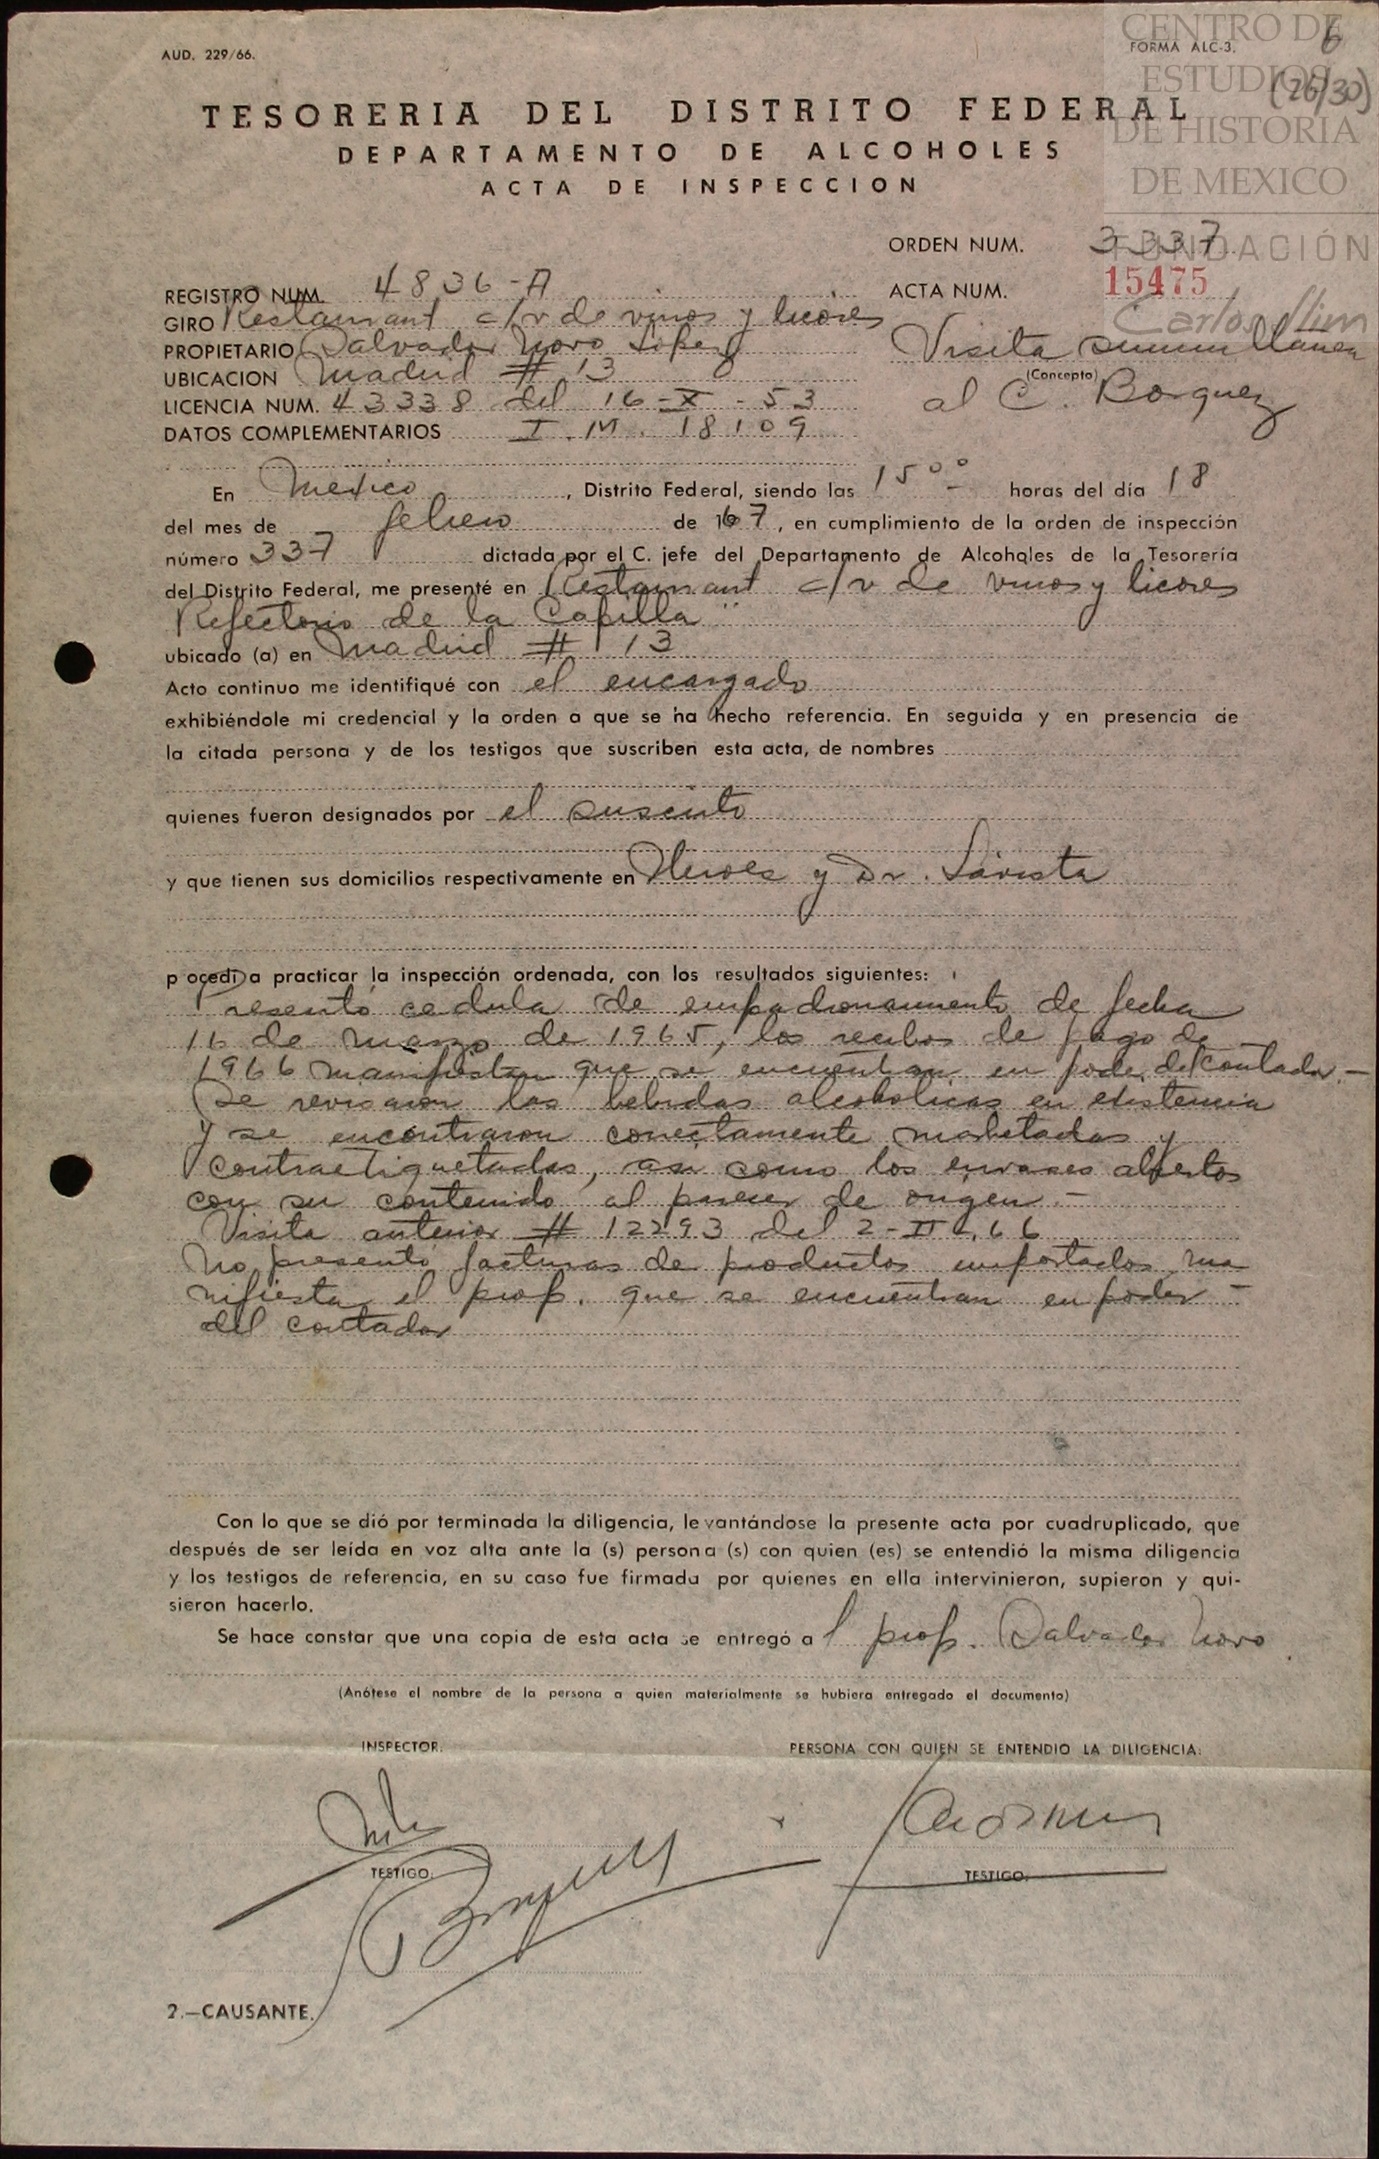 AUD. 229/66.
FORMA ALC-3.
6
(26/30)
CENTRO DE
ESTUDIOS
DE HISTORIA
DE MEXICO
FUNDACIÓN
Carlos Slim
TESORERIA DEL DISTRITO FEDERAL
DEPARTAMENTO DE ALCOHOLES
ACTA DE INSPECCION
ORDEN NUM. 3337
REGISTRO NUM. 4836-A
ACTA NUM. 15475
GIRO Restaurant c/v de vinos y licores
PROPIETARIO Salvador Novo López
Visita
(Concepto)
UBICACION Madrid # 13
al C. Borquez
LICENCIA NUM. 43338 del 16-X-53
DATOS COMPLEMENTARIOS I.M. 18109
En Mexico, Distrito Federal, siendo las 15 00 horas del día 18
del mes de febrero de 1967, en cumplimiento de la orden de inspección
número 337 dictada por el C. jefe del Departamento de Alcoholes de la Tesorería
del Distrito Federal, me presenté en Restaurant c/v de vinos y licores
Refectorio de la Capilla"
ubicado (a) en Madrid # 13
Acto continuo me identifiqué con el encargado
exhibiéndole mi credencial y la orden a que se ha hecho referencia. En seguida y en presencia de
la citada persona y de los testigos que suscriben esta acta, de nombres
quienes fueron designados por el suscrito
y que tienen sus domicilios respectivamente en Heroes y Dr. Lavista
p ocedí a practicar la inspección ordenada, con los resultados siguientes:
Presentó cedula de empadronamiento de fecha
16 de marzo de 1965, los recibos de pago de
1966 manifiestan que se encuentran en poder del contador.-
Se revisaron las bebidas alcoholicas en existencia
y se encontraron correctamente marbetadas y
contraetiquetadas, asi como los envases abiertos
con su contenido al parecer de origen.-
Visita anterior # 12293 del 2-II-66
No presentó facturas de productos importados, ma
nifiesta el prop. que se encuentran en poder -
del contador
Con lo que se dió por terminada la diligencia, levantándose la presente acta por cuadruplicado, que
después de ser leída en voz alta ante la (s) persona (s) con quien (es) se entendió la misma diligencia
y los testigos de referencia, en su caso fue firmada por quienes en ella intervinieron, supieron y qui-
sieron hacerlo.
Se hace constar que una copia de esta acta se entregó al prop. Salvador Novo
(Anótese el nombre de la persona a quien materialmente se hubiera entregado el documento)
INSPECTOR.
PERSONA CON QUIEN SE ENTENDIO LA DILIGENCIA:
TESTIGO.
TESTIGO.
2.—CAUSANTE.